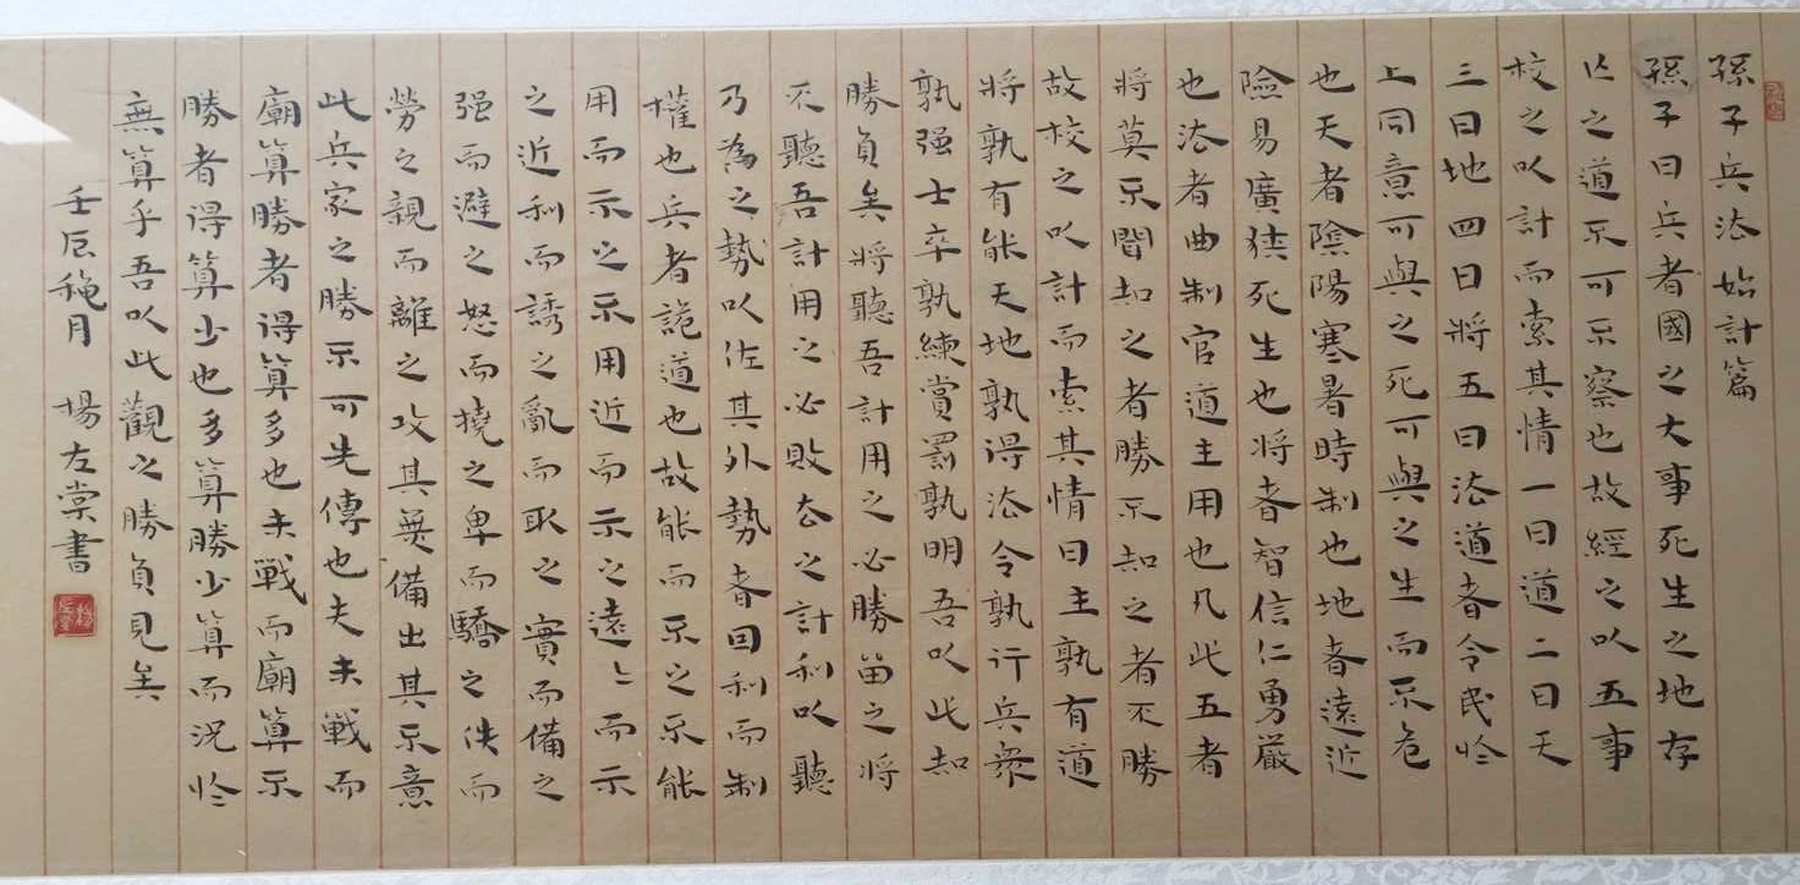 孫子兵法始計篇
孫子曰兵者國之大事死生之地存
亡之道不可不察也故經之以五事
校之以計而索其情一曰道二曰天
三曰地四曰將五曰法道者令民於
上同意可與之死可與之生而不危
也天者陰陽寒暑時制也地者遠近
險易廣狹死生也將者智信仁勇嚴
也法者曲制官道主用也凡此五者
將莫不聞知之者勝不知之者不勝
故校之以計而索其情曰主孰有道
將孰有能天地孰得法令孰行兵衆
孰强士卒孰練賞罰孰明吾以此知
勝負矣將聽吾計用之必勝留之將
不聽吾計用之必敗去之計利以聽
乃為之勢以佐其外勢者因利而制
權也兵者詭道也故能而示之不能
用而示之不用近而示之遠〻而示
之近利而誘之亂而取之實而備之
强而避之怒而撓之卑而驕之佚而
勞之親而離之攻其無備出其不意
此兵家之勝不可先傳也夫未戰而
廟算勝者得算多也未戰而廟算不
勝者得算少也多算勝少算而況於
無算乎吾以此觀之勝負見矣
壬辰穐月 楊左棠書